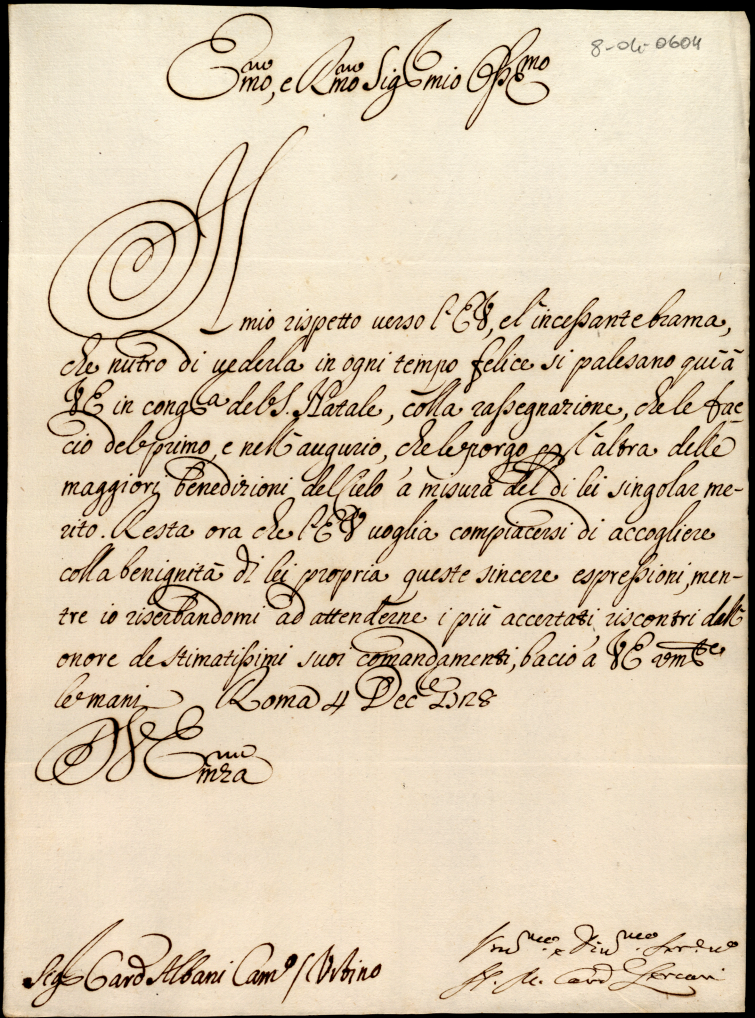 8-04-0604
Em̃o, e Rm̃o Sig.r mio Oss.mo
Il
mio rispetto verso l'E.V., e l'incessante brama,
che nutro di vederla in ogni tempo felice si palesano qui à
V.E. in cong.a del S. Natale, colla rassegnazione, che le fac-
cio del primo, e nell'augurio, che le porgo per l'altra delle
maggiori benedizioni del Cielo à misura del di lei singolar me-
rito. Resta ora che l'E.V. voglia compiacersi di accogliere
colla benignità di lei propria queste sincere espressioni, men-
tre io riserbandomi ad attenderne i più accertati riscontri dell'
onore de stimatissimi suoi comandamenti, bacio à V.E. um.te
le mani Roma 4 Dec.e 1728
D V Em̃za
Sig.r Card Albani Cam.o / Urbino
Card Lercari